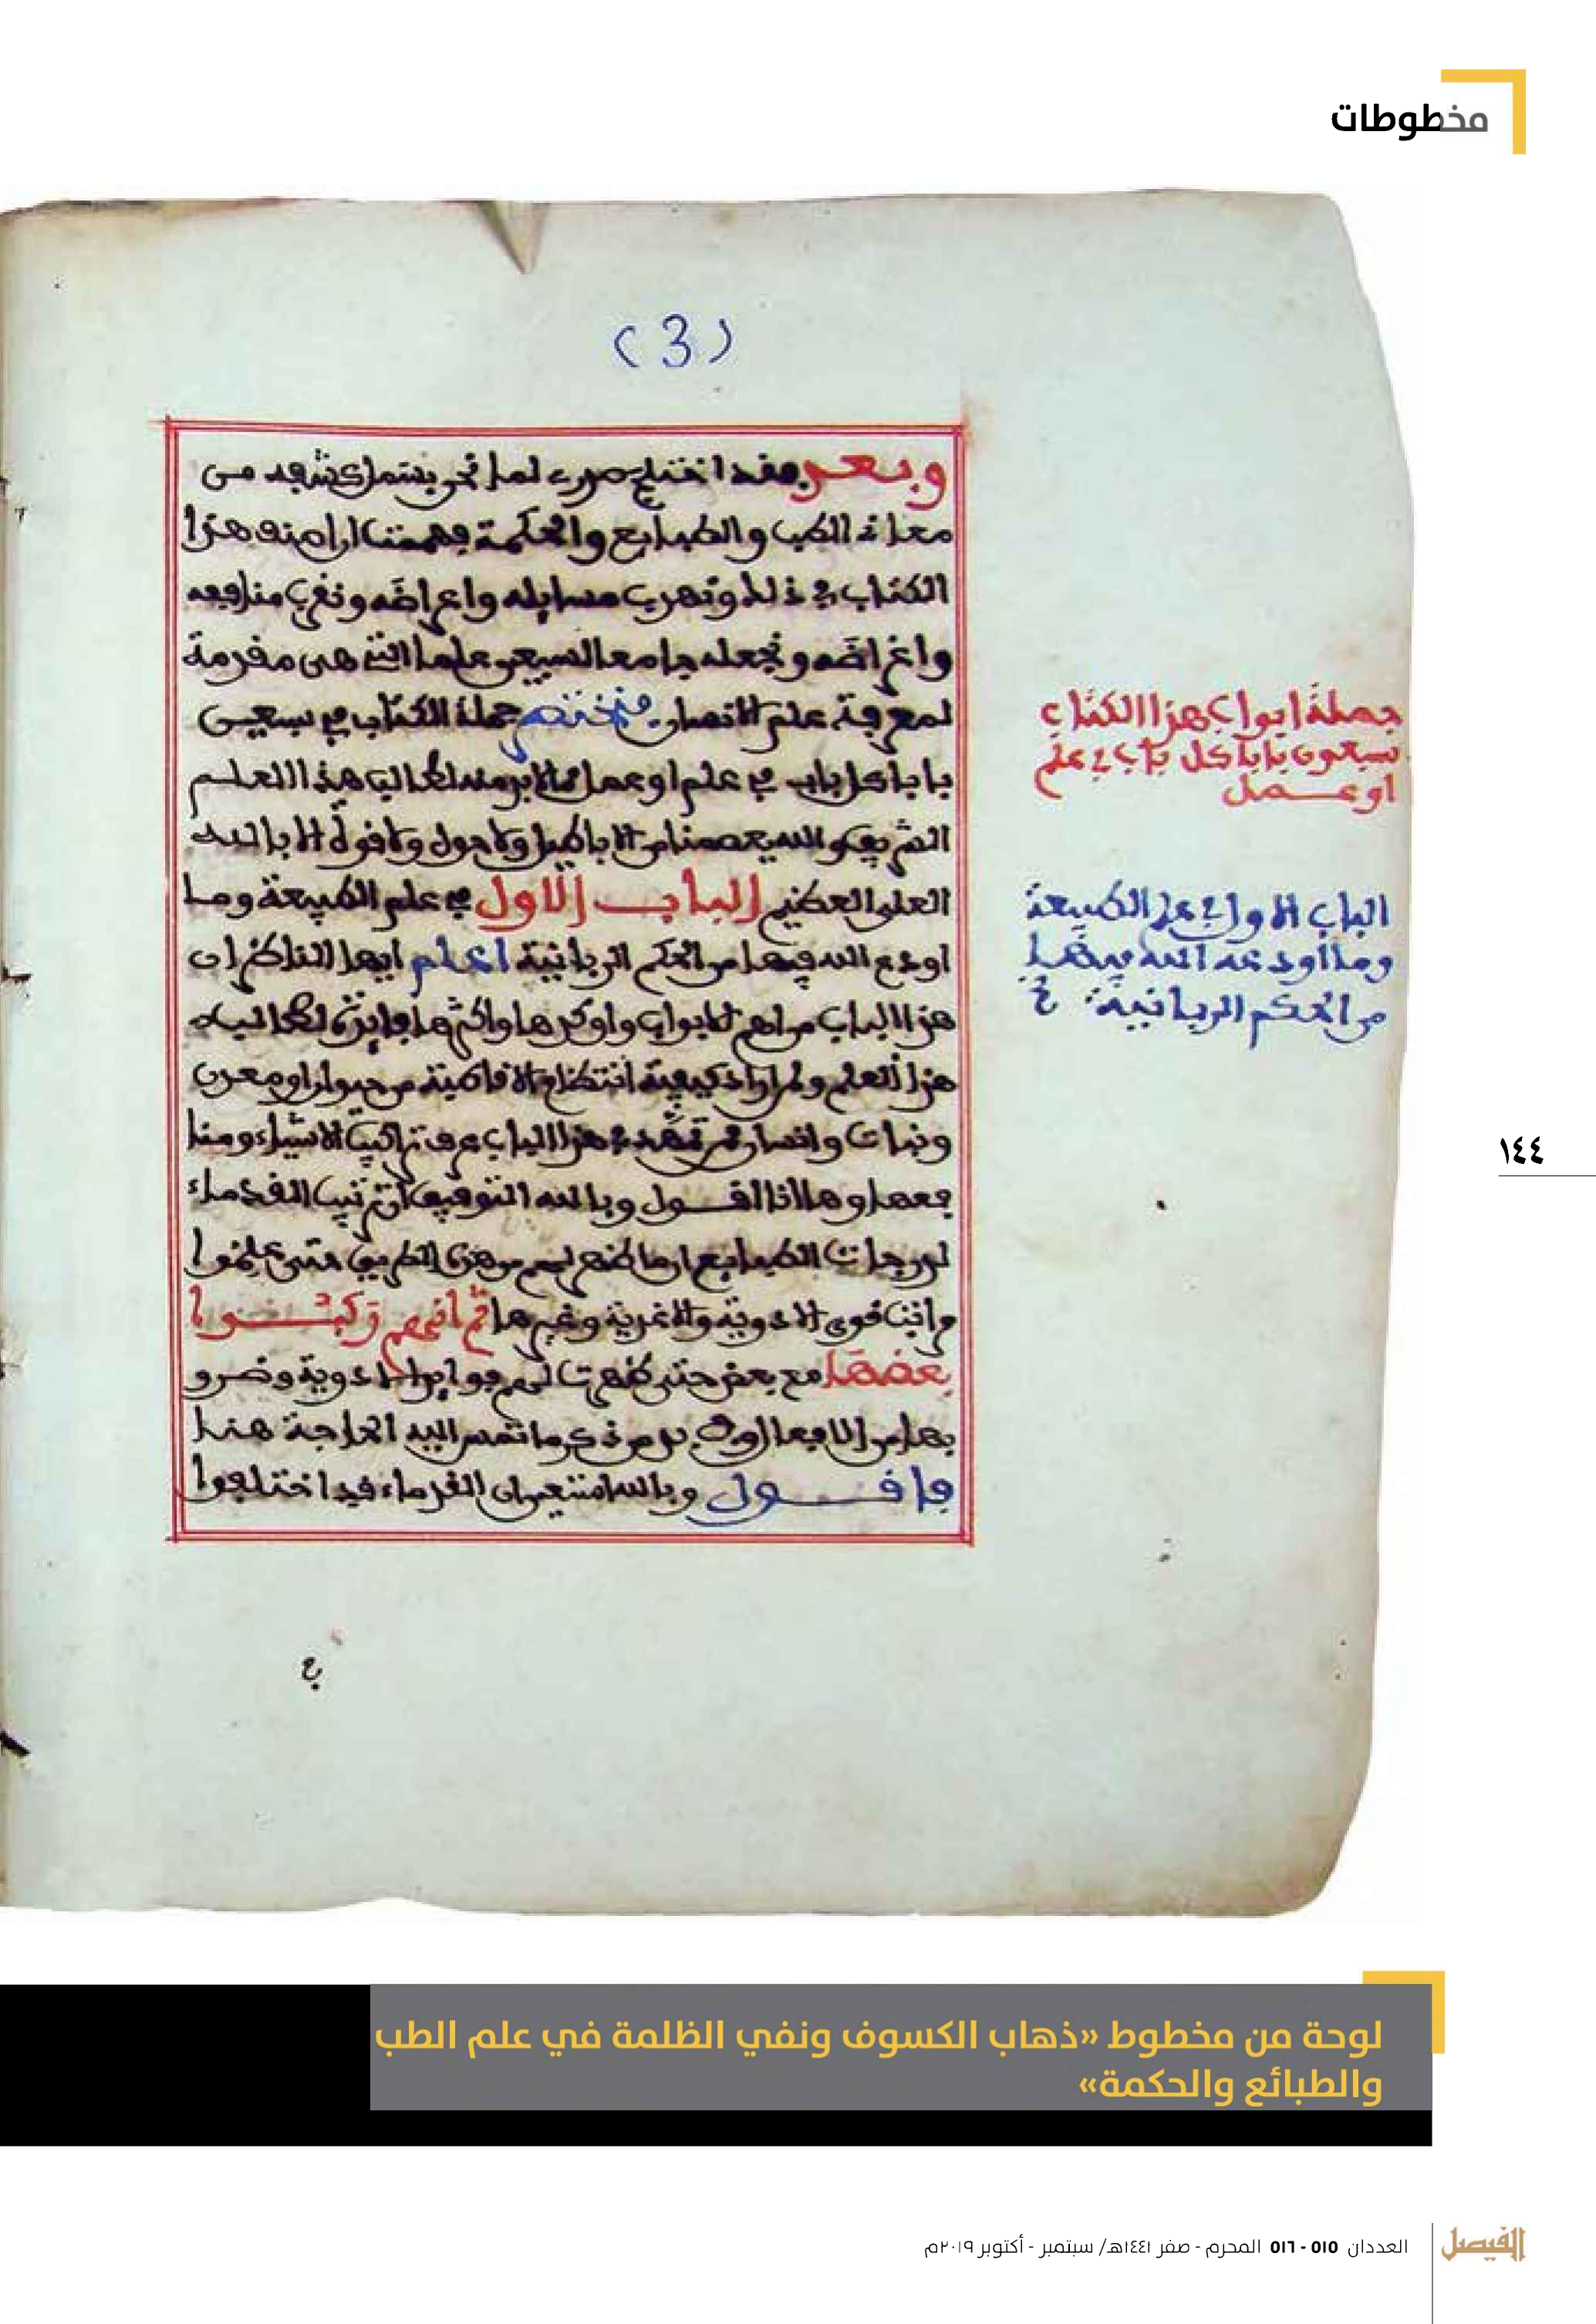 مخطوطات
(3)
وبعد فقد اختلج صدري لما نحن بسمل
معاني الطب والطبايع والحكمة فهمتنا ان هذا
الكتاب في ذلك وتهرب مسايله واعراضه ونفي منافعه
واغراضه ونجعله جامعا لسبعين علما التي هي مقدمة
لمعرفة علم الانسان فنختتم جملة الكتاب في سبعين
بابا كل باب في علم او عمل مما لابد منه لطالب هذا العلم
الشريف والله يعصمنا من الاباطيل ولا حول ولا قوة الا بالله
العلي العظيم الباب الاول في علم الطبيعة وما
اودع الله فيها من الحكم الربانية اعلم ايها الناظر ان
هذا الباب من اهم الابواب واوكدها واكثرها فايدة لطالب
هذا العلم ولمن اراد كيفية انتظام من حيوان او معدن
ونبات وانسان فمن هذا الباب عرف تراكيب الاشياء ومنا
فعها وها انا اقول وبالله التوفيق ان ترتيب القدماء
لدرجات الطبايع ان ما ظهر لهم من هذه الطريق حتى علموا
قوى الادوية والاغذية وغيرها ثم انهم ركبوا
بعضها مع بعض حتى ظهرت لهم فوايد الادوية وضرو
بها من الافعال من ذكر ما تمس اليه الحاجة هنا
فاقول وبالله استعين ان القدماء قد اختلفوا
جملة ابواب هذا الكتاب
سبعون بابا كل باب في علم
او عمل
الباب الاول في علم الطبيعة
وما أودعه الله فيها
من الحكم الربانية
١٤٤
لوحة من مخطوط «ذهاب الكسوف ونفي الظلمة في علم الطب
والطبائع والحكمة»
الفيصل
العددان ٥١٥ - ٥١٦ المحرم - صفر ١٤٤١هـ/ سبتمبر - أكتوبر ٢٠١٩م